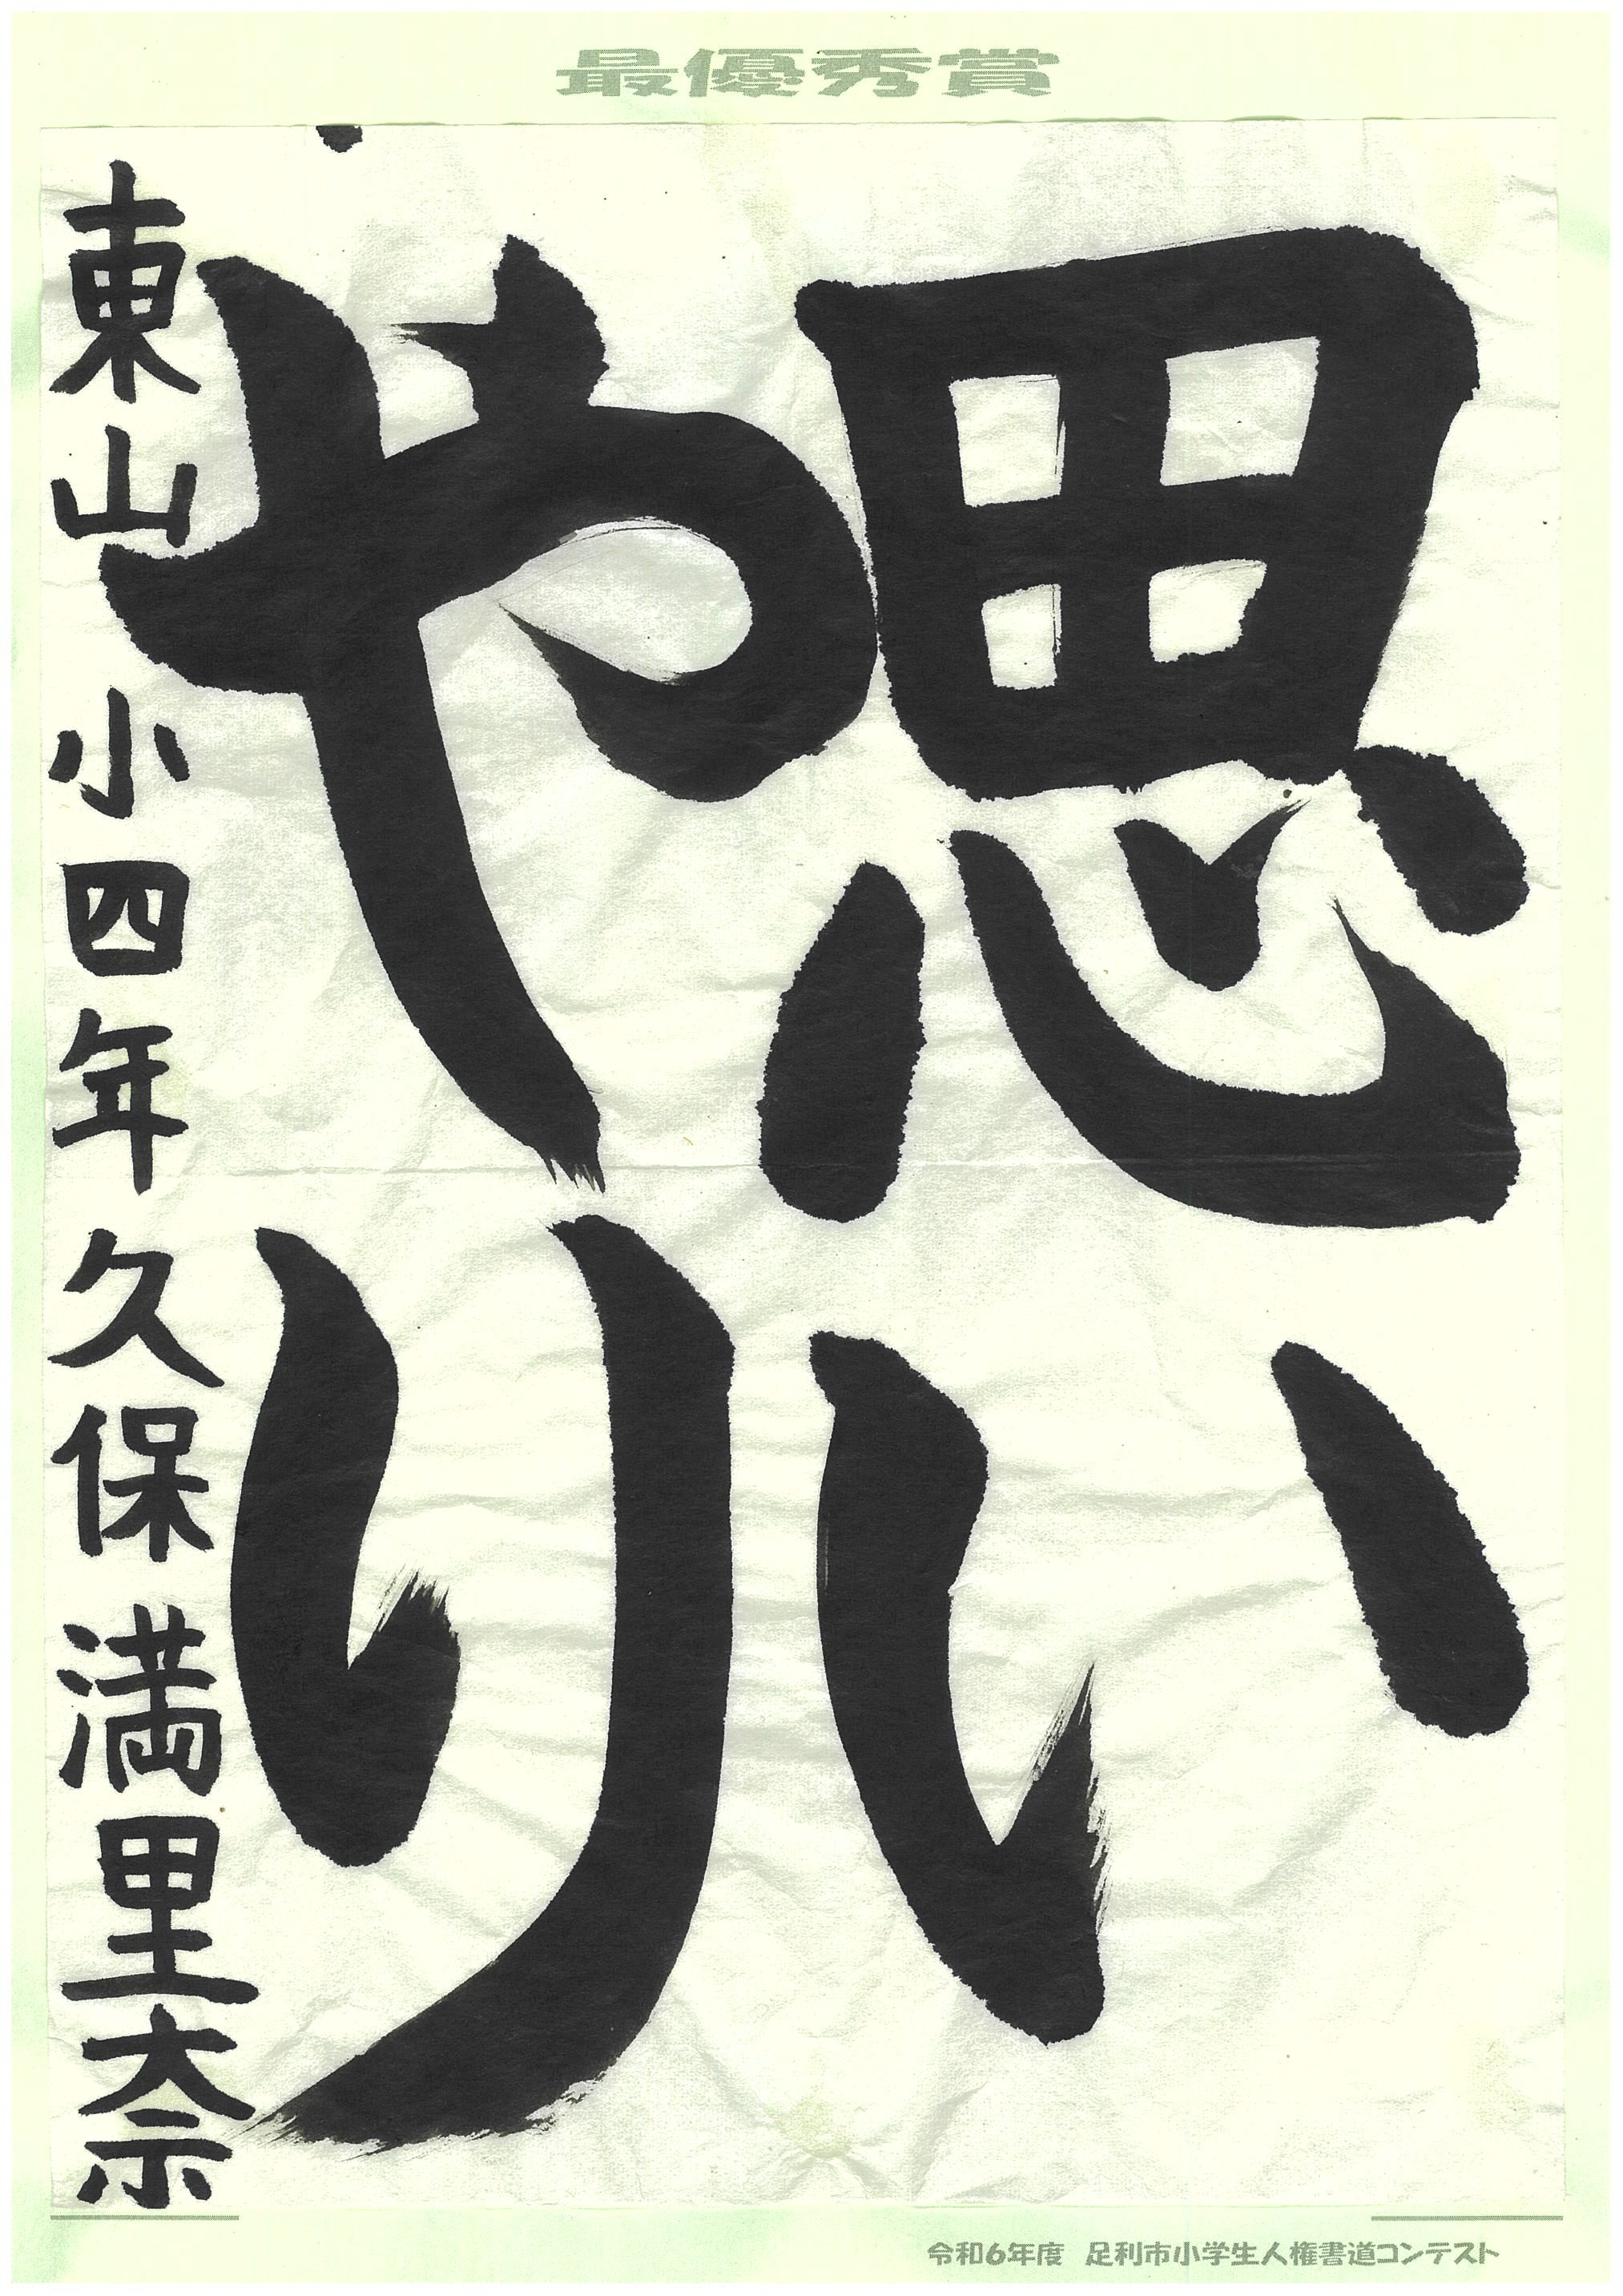 最優秀賞
思い
やり
東山小四年久保満里奈
令和6年度 足利市小学生人権書道コンテスト